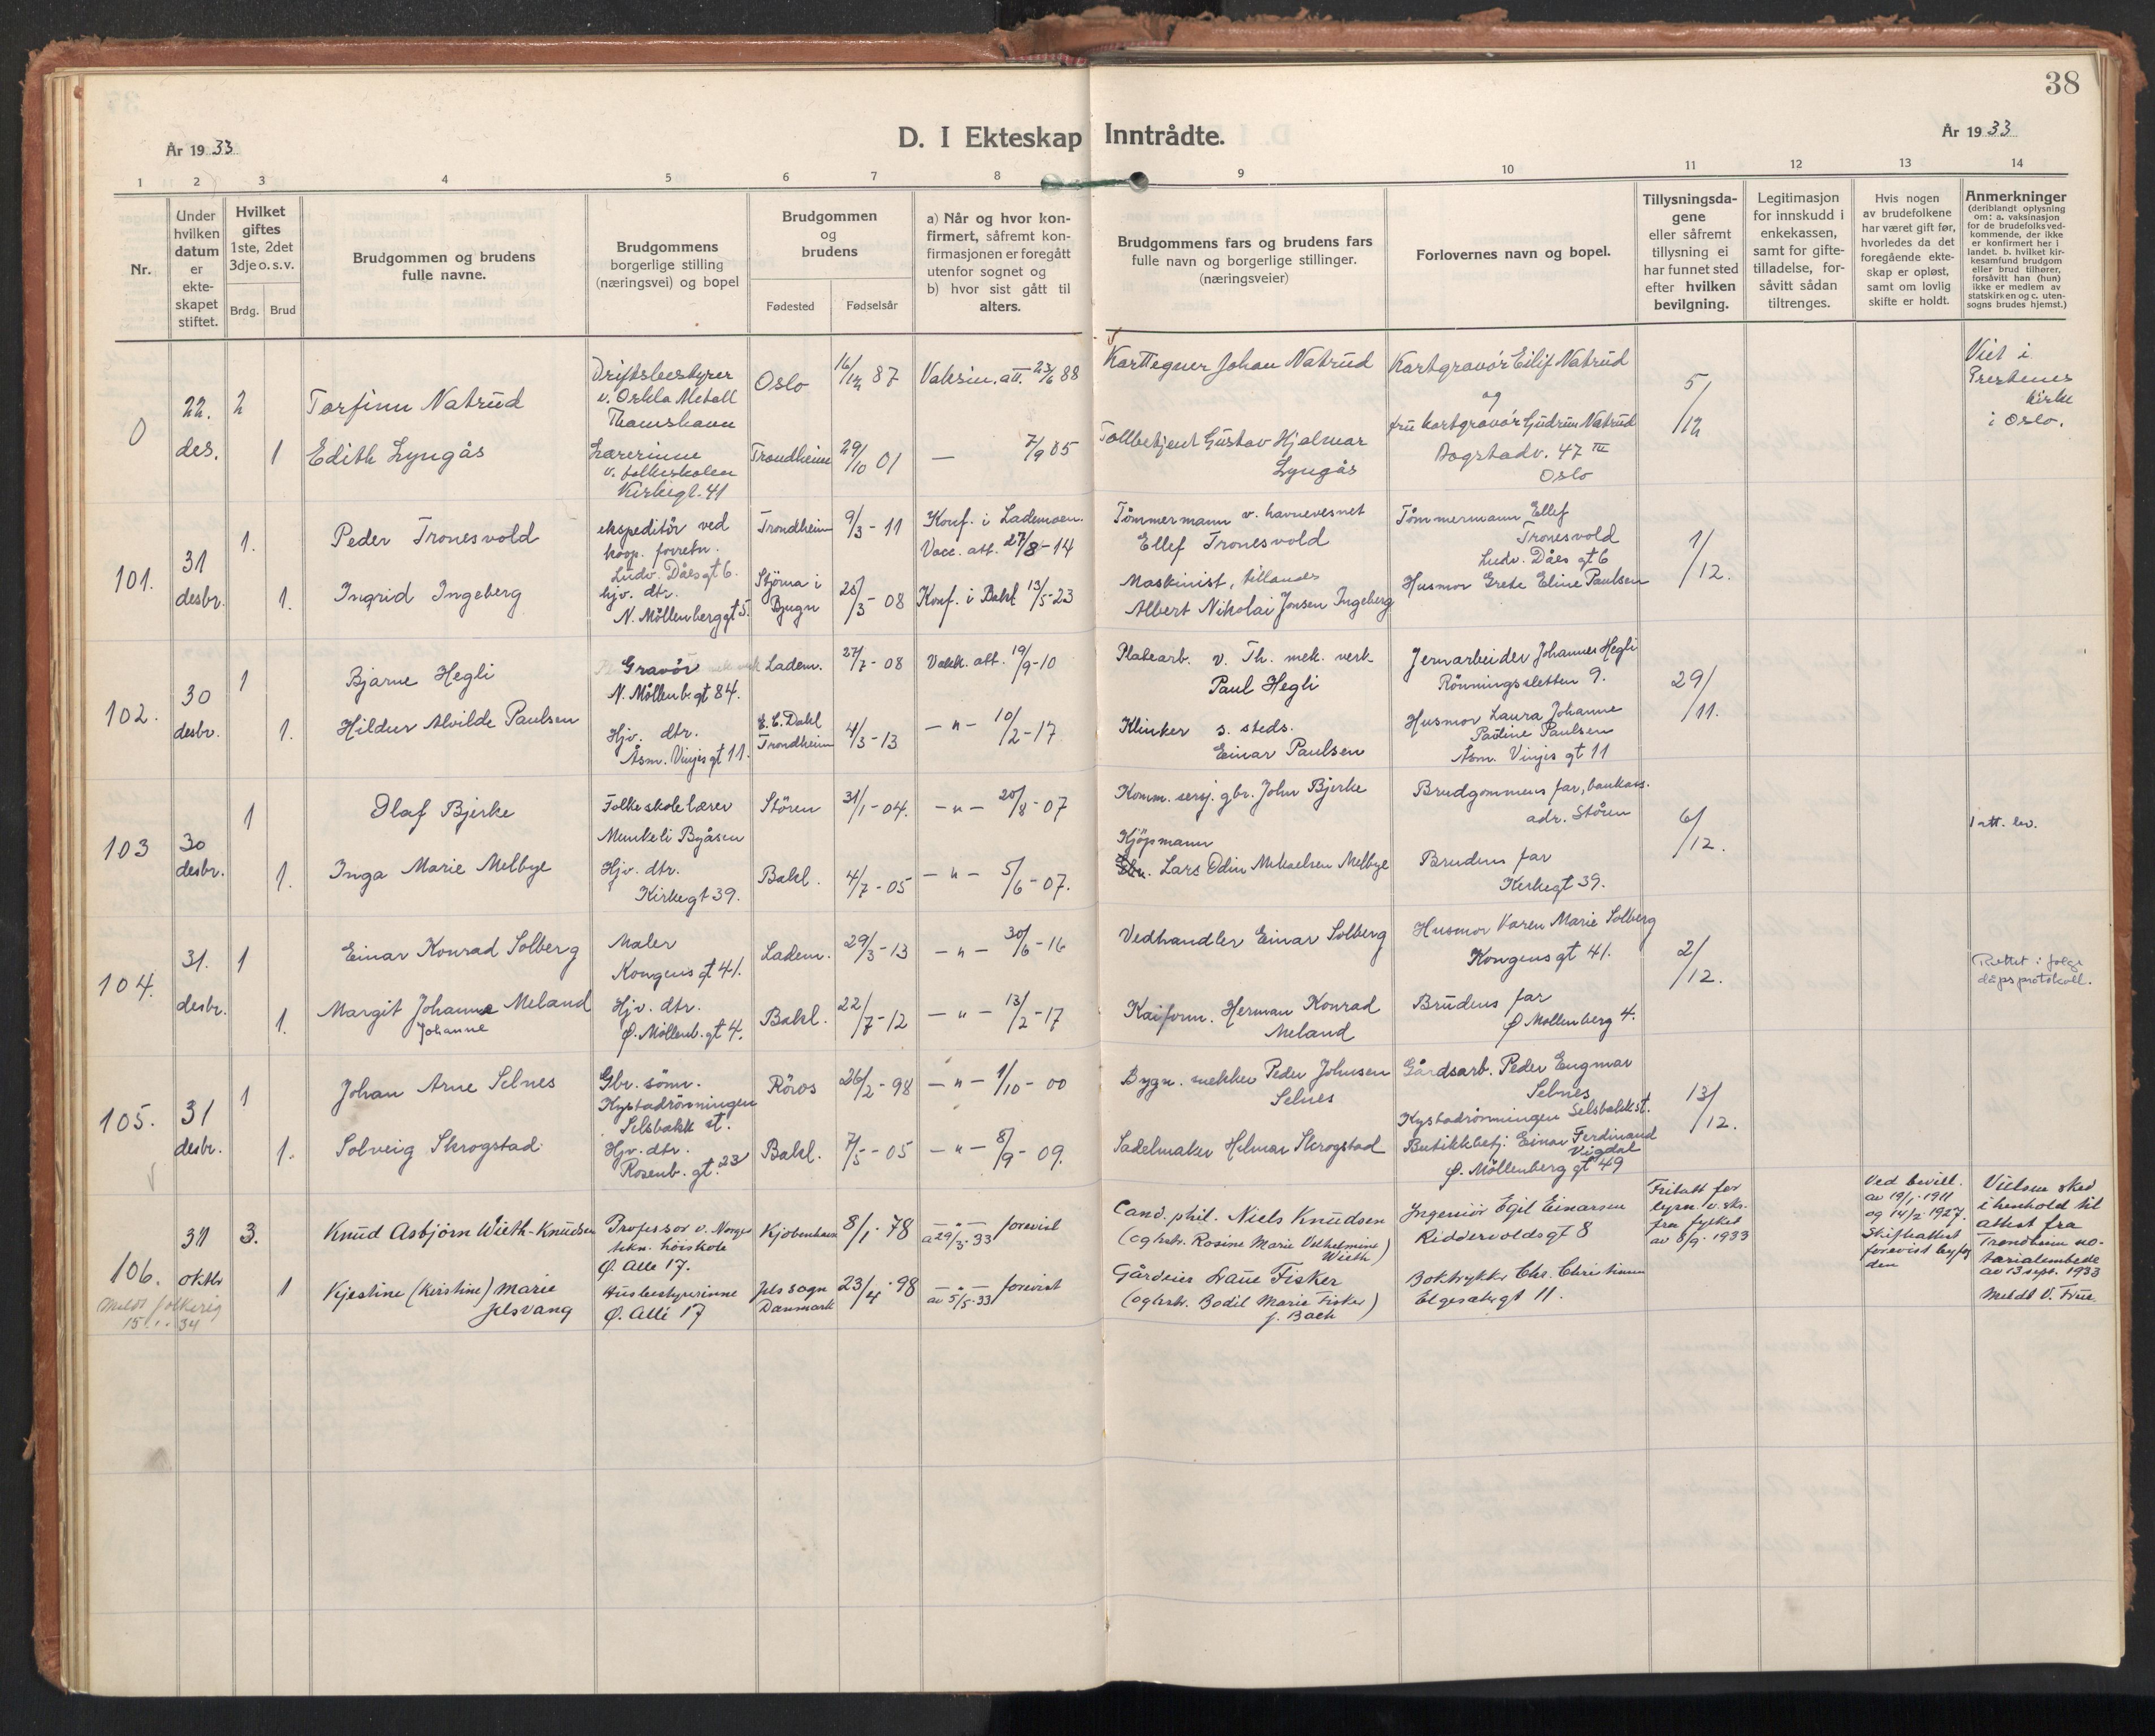 38
År 19 33
D. I Ekteskap Inntrådte.
År 19 33
1 2 3 4 5 6 7 8 9 10 11 12 13 14
Nr.
Under
hvilken
datum
er
ekte-
skapet
stiftet.
Hvilket
giftes
1ste, 2det
3dje o. s. v.
Brdg. Brud
Brudgommen og brudens
fulle navne.
Brudgommens
borgerlige stilling
(næringsvei) og bopel
Brudgommen
og
brudens
Fødested Fødselsår
a) Når og hvor kon-
firmert, såfremt kon-
firmasjonen er foregått
utenfor sognet og
b) hvor sist gått til
alters.
Brudgommens fars og brudens fars
fulle navn og borgerlige stillinger.
(næringsveier)
Forlovernes navn og bopel.
Tillysningsda-
gene
eller såfremt
tillysning ei
har funnet sted
efter hvilken
bevilgning.
Legitimasjon
for innskudd i
enkekassen,
samt for gifte-
tilladelse, for-
såvitt sådan
tiltrenges.
Hvis nogen
av brudefolkene
har været gift før,
hvorledes da det
foregående ekte-
skap er opløst,
samt om lovlig
skifte er holdt.
Anmerkninger
(deriblandt oplysning
om: a. vaksinasjon
for de brudefolks ved-
kommende, der ikke
er konfirmert her i
landet. b. hvilket kir-
kesamfund brudgom
eller brud tilhører,
forsåvitt han (hun)
ikke er medlem av
statskirken og c. uten-
sogns brudes hjemst.)
0
22.
des.
2
Torfinn Natrud
Driftsbestyrer
v. Orkla Metall
Thamshavn
Oslo
16/12 87
Vaksin. att. 23/6 88
Karttegner Johan Natrud
Kartgravør Eilif Natrud
og
fru kartgravør Gudrun Natrud
5/12
Viet i
Prestenes
kirke
i Oslo.
1
Edith Lyngås
Lærerinne
v. folkeskolen
Kirkegt. 41
Trondheim
29/10 01
— 7/9 05
Tollbetjent Gustav Hjalmar
Lyngås
47 III
Oslo
101.
31
desbr.
1.
Peder Tronesvold
ekspeditør ved
koop. forretn.
Ludv. Dåes gt 6.
Trondheim
9/3 - 11
Konf. i Lademoen.
Vacc. att. 27/8 - 14
Tømmermann v. havnevesnet
Ellef Tronesvold
Tømmermann Ellef
Tronesvold
Ludv. Dåes gt 6
1/12.
1.
Ingrid Ingeberg
hjv. dtr.
N. Möllenberggt 5.
Stjörna i
Bjugn
25/3 - 08
Konf. i Bakl 13/5 - 23
Maskinist, tillands
Albert Nikolai Jonsen Ingeberg
Husmor Grete Eline Paulsen
102.
30
desbr.
1
Bjarne Hegli
Gravör
N. Möllenb. gt 84.
Ladem.
27/7 - 08
Vakk. att. 19/9 - 10
Platearb. v. Th. mek. verk.
Paul Hegli
Jernarbeider Johannes Hegli
Rönningssletten 9.
29/11.
1.
Hildur Alvilde Paulsen
Hjv. dtr.
Åsm. Vinjes gt 11.
E. C. Dahl
Trondheim
4/3 - 13
— " — 10/2 - 17
Klinker s. steds.
Einar Paulsen
Husmor Laura Johanne
Pauline Paulsen
Åsm. Vinjes gt 11
103
30
desbr.
1
Olaf Bjerke
Folkeskolelærer
Munkeli Byåsen
Stören
31/1 - 04.
— " — 20/8 - 07
Komm. sersj. gbr. John Bjerke
Brudgommens far, bankass.
adr. Stören
6/12.
1 att. lev.
1.
Inga Marie Melbye
Hjv. dtr.
Kirkegt 39.
Bakl.
4/7 - 05
— " — 5/6 - 07.
Kjöpmann
Gbr. Lars Odin Mikaelsen Melbye
Brudens far
Kirkegt 39.
104.
31.
desbr.
1
Einar Konrad Solberg
Maler
Kongens gt 41.
Ladem.
29/3 - 13
— " — 30/6 - 16
Vedhandler Einar Solberg
Husmor Karen Marie Solberg
Kongens gt 41.
2/12.
Rettet i følge
dåpsprotokoll.
1.
Margit Johanne Meland
Johanne
Hjv. dtr.
Ø. Möllenb. gt 4.
Bakl.
22/7 - 12
— " — 13/2 - 17
Kaiform. Herman Konrad
Meland
Brudens far
Ø Mollenberg 4.
105.
31
desbr.
1
Johan Arne Selnes
Gbr. sönn.
Kystadrönningen
Selsbakk st.
Röros
26/2 - 98
— " — 1/10 - 00
Bygn. snekker Peder Johnsen
Selnes
Gårdsarb. Peder Engmar
Selnes
Kystadrönningen Selsbakk st.
13/12.
1.
Solveig Skrogstad
Hjv. dtr.
Rosenb. gt. 23
Bakl.
7/5 - 05
— " — 8/9 - 09.
Sadelmaker Hilmar Skrogstad
Butikkbetj. Einar Ferdinand
Vigdal
Ø. Möllenberg gt 49
106.
31
oktbr
3.
Knud Asbjörn Wieth-Knudsen
Professor v. Norges
tekn. höiskole
Ø. Alle 17.
Kjöbenhavn
8/1 - 78
— " — forevist
a 29/3 - 33
Cand. phil. Niels Knudsen
(og hstr. Rosine Marie Vilhelmine
Wieth)
Ingeniör Egil Einarsen
Riddervoldsgt 8
Fritatt for
lysn. v. skr.
fra fylket
av 8/9 - 1933
Ved bevill.
av 19/1 - 1911
og 14/2 1927.
Skifteattest
forevist
Vielsen sked
i henhold til
attest fra
Trondheim no-
tarialembede
av 13 sept. 1933
Meldt V. Frue
1
Kjestine (Kirstine) Marie
Jelsvang
Husbestyrerinne
Ø. Allé 17
Jels sogn
Danmark
23/4 - 98
— " — forevist
av 5/5 - 33
Gårdeier Laue Fisker
(og hstr. Bodil Marie Fisker)
f. Bach
Boktrykker Chr. Christiansen
Elgesetergt 11.
Meldt folkereg
15 34